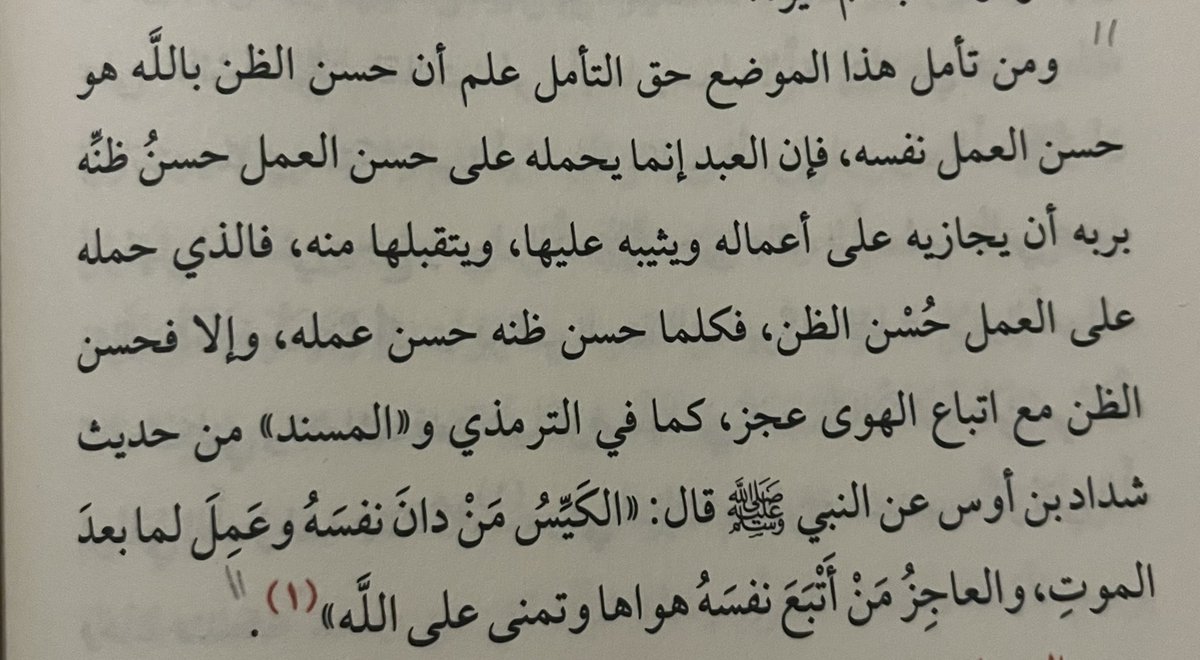 ومن تأمل هذا الموضع حق التأمل علم أن حسن الظن باللَّه هو
حسن العمل نفسه، فإن العبد إنما يحمله على حسن العمل حسنُ ظنِّه
بربه أن يجازيه على أعماله ويثيبه عليها، ويتقبلها منه، فالذي حمله
على العمل حُسْن الظن، فكلما حسن ظنه حسن عمله، وإلا فحسن
الظن مع اتباع الهوى عجز، كما في الترمذي و«المسند» من حديث
شداد بن أوس عن النبي ﷺ قال: «الكَيِّسُ مَنْ دانَ نفسَهُ وعَمِلَ لما بعدَ
الموتِ، والعاجِزُ مَنْ أَتْبَعَ نفسَهُ هواها وتمنى على اللَّه» (١).